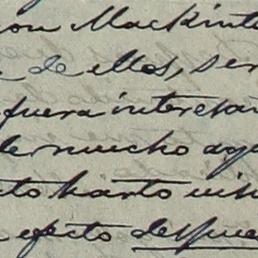 con Mackint
de ellos, ser
fuera interesan
de mucho agu
to harto
efecto despue